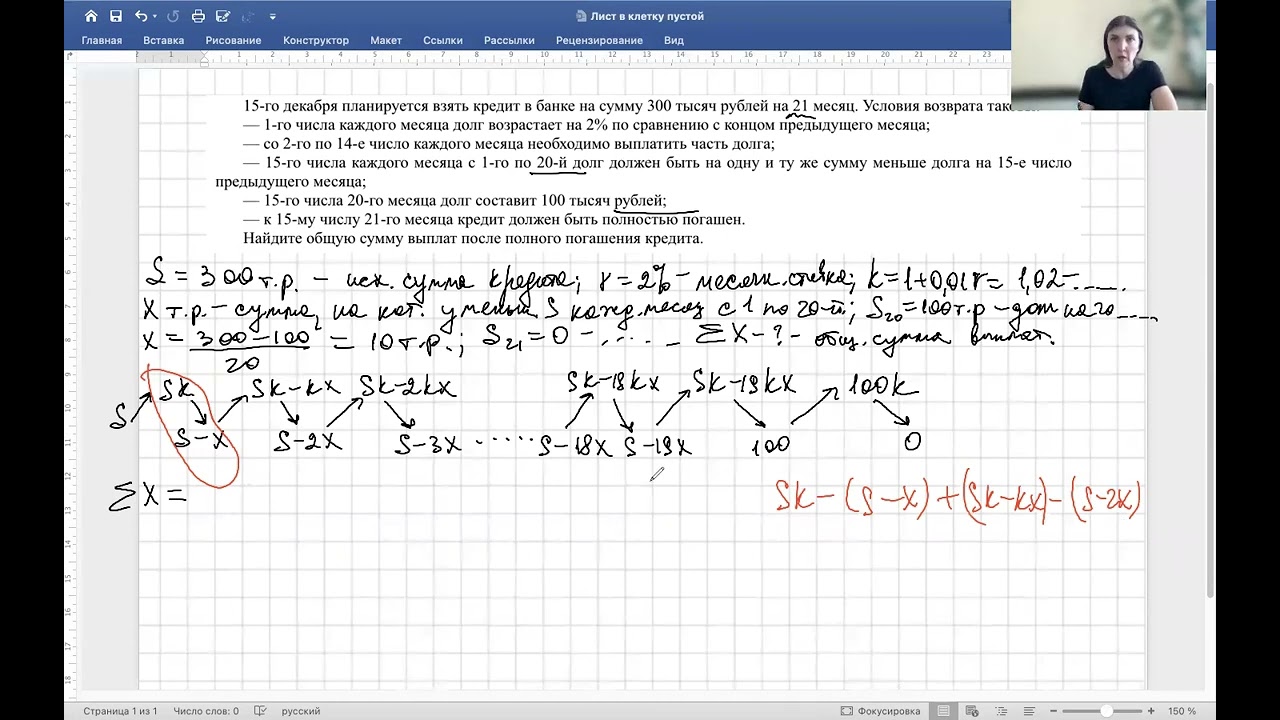 Лист в клетку пустой
Главная Вставка Рисование Конструктор Макет Ссылки Рассылки Рецензирование Вид
2 1 1 2 3 4 5 6 7 8 9 10 11 12 13 14 15 16 17 18 19 20 21 22 23
15-го декабря планируется взять кредит в банке на сумму 300 тысяч рублей на 21 месяц. Условия возврата
— 1-го числа каждого месяца долг возрастает на 2% по сравнению с концом предыдущего месяца;
— со 2-го по 14-е число каждого месяца необходимо выплатить часть долга;
— 15-го числа каждого месяца с 1-го по 20-й долг должен быть на одну и ту же сумму меньше долга на 15-е число
предыдущего месяца;
— 15-го числа 20-го месяца долг составит 100 тысяч рублей;
— к 15-му числу 21-го месяца кредит должен быть полностью погашен.
Найдите общую сумму выплат после полного погашения кредита.
S = 300 т.р. – исх. сумма кредита; r = 2% – месячн. ставка; k = 1+0,01r = 1,02 – .....
X т.р. – сумма, на кот. уменьш S кажд. месяц с 1 по 20-й; S₂₀ = 100 т.р – долг на 20 ....
X = (300 – 100)/20 = 10 т.р.; S₂₁ = 0 – ..... ΣX – ? – общ. сумма выплат.
Sk Sk–kx Sk–2kx Sk–18kx Sk–19kx 100k
S S–X S–2X S–3X ..... S–18X S–19X 100 0
ΣX = Sk – (S – X) + (Sk – kx) – (S–2X)
Страница 1 из 1 Число слов: 0 русский Фокусировка 150 %